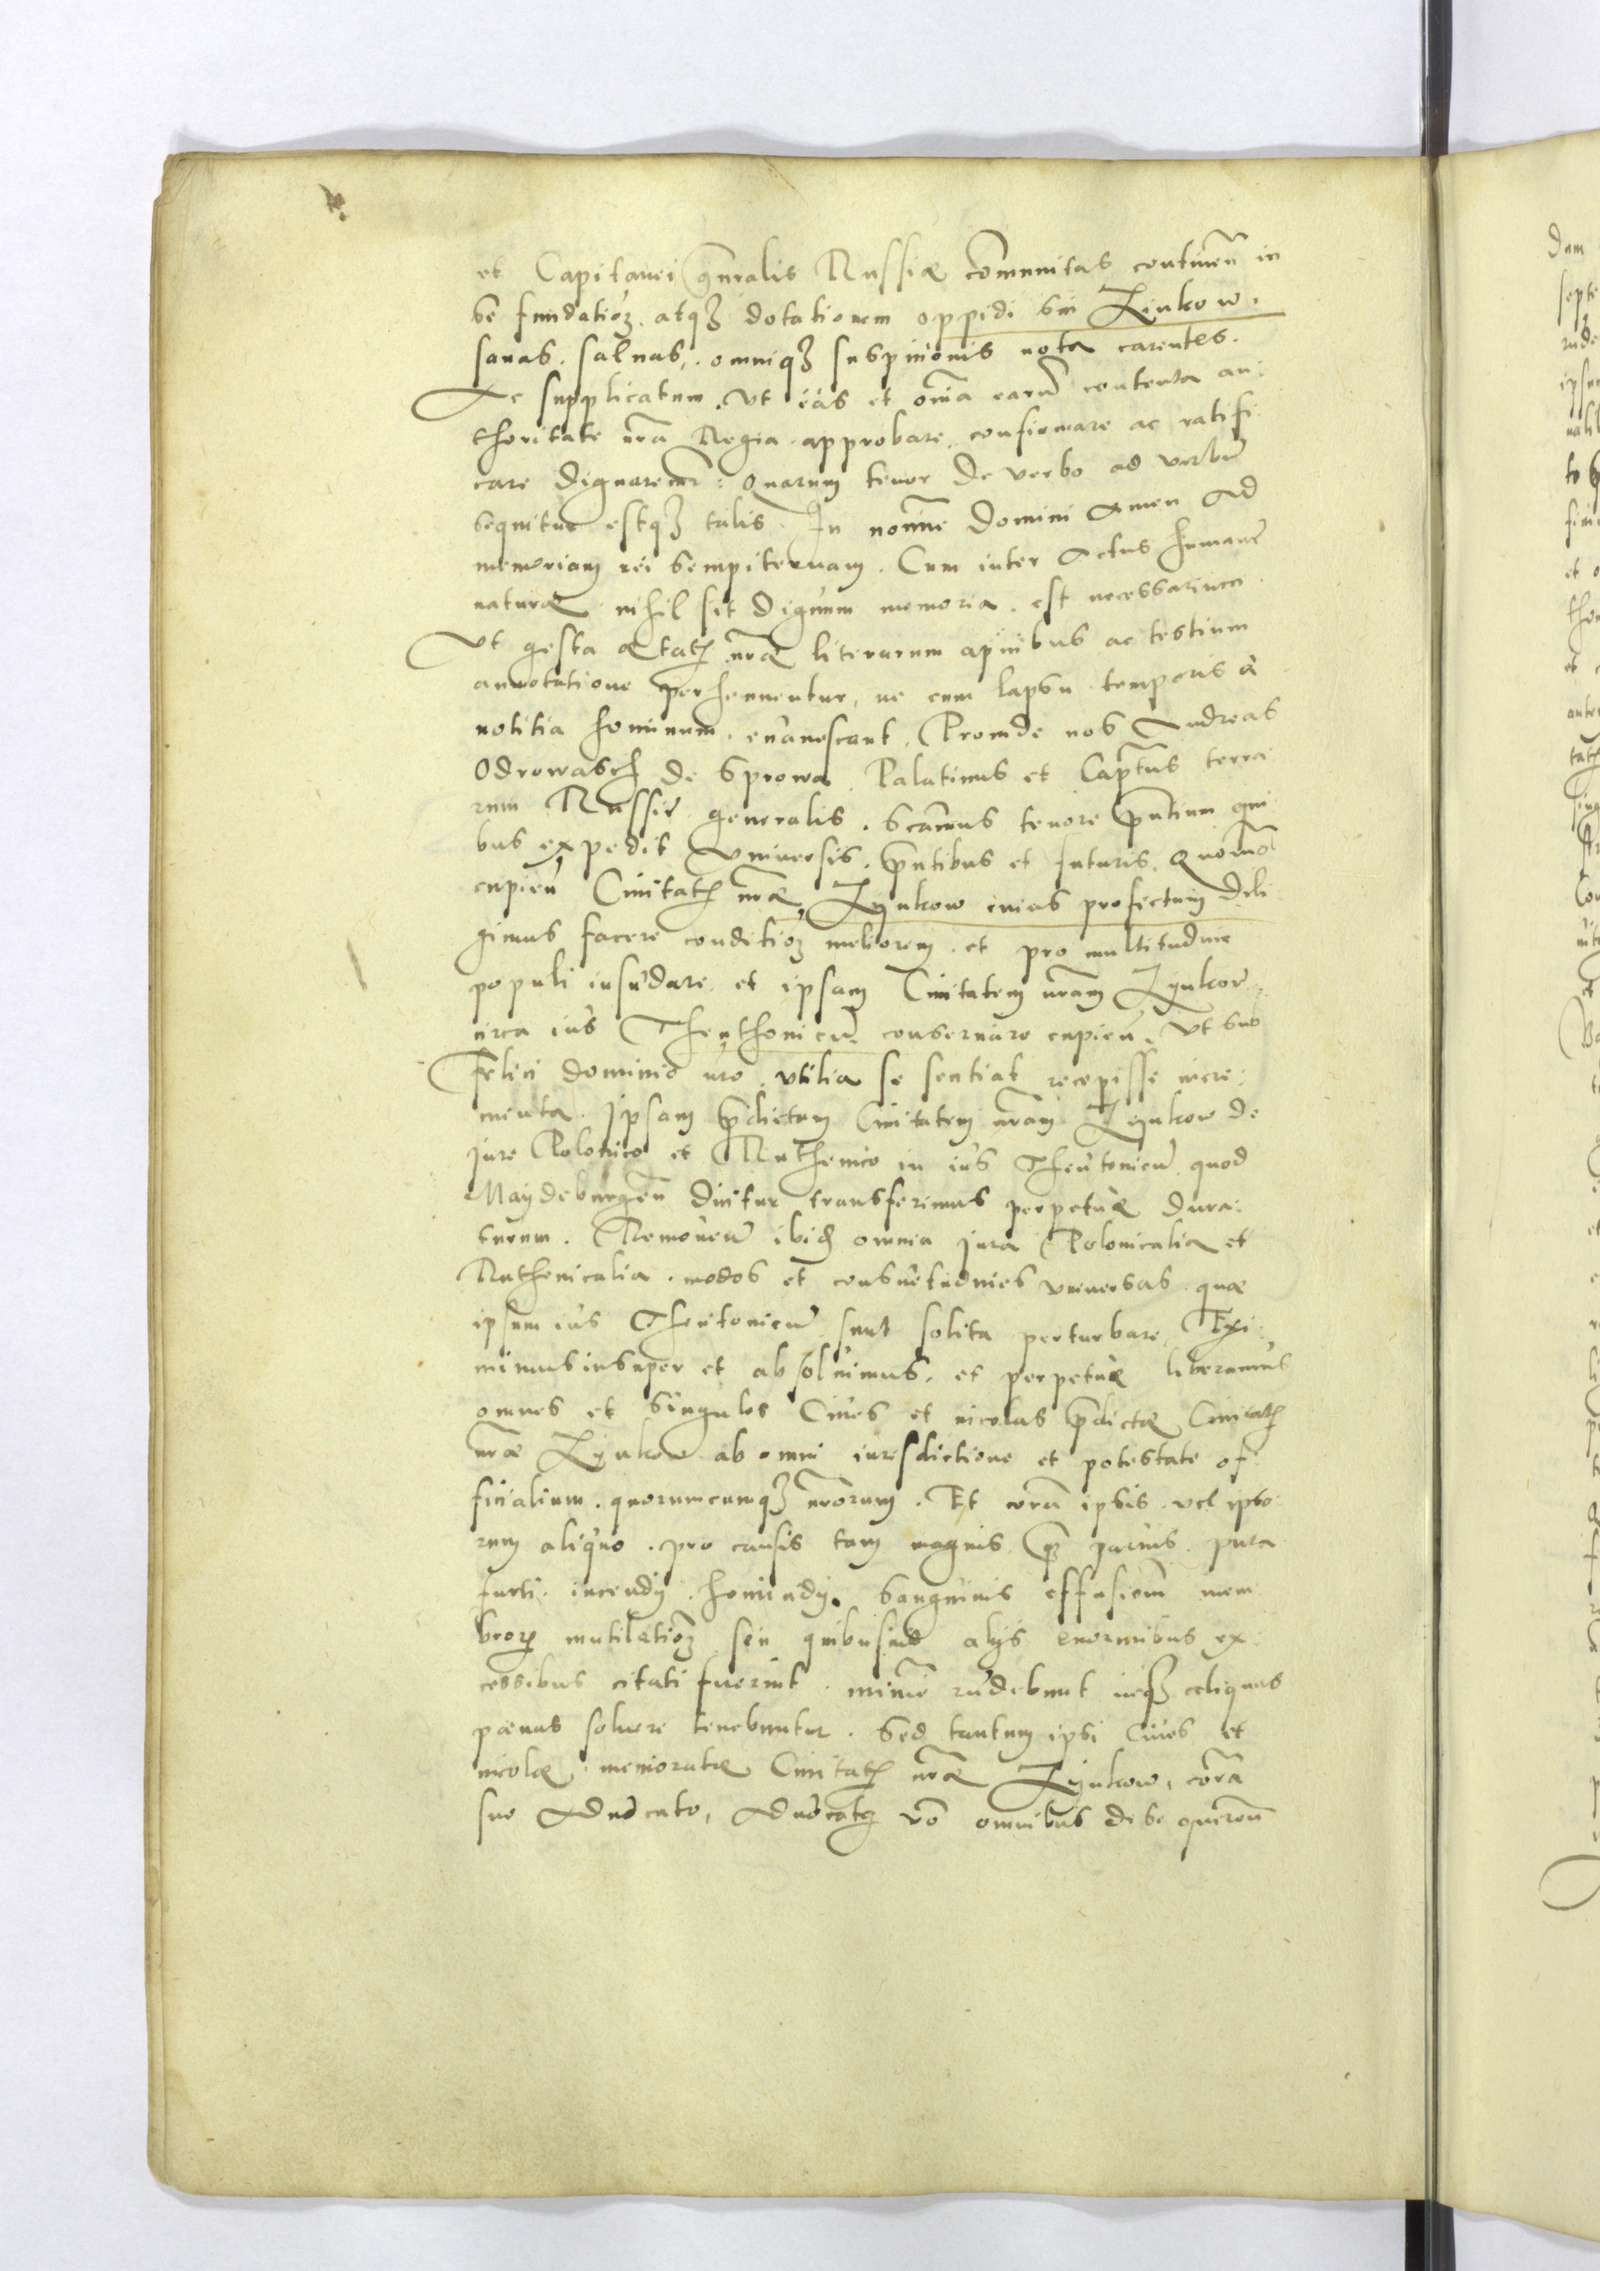 et Capitanei gnralis Russiæ communitas continen̄ in
se fundatioʒ atqʒ dotationem oppidi sui Zinkow.
sanas. saluas,. omniqʒ suspitionis nota carentes.
Ac supplicatum. Vt eas et om̄ia earū contenta au:
thoritate nr̄a Regia approbare. confirmare ac ratifi
care dignaremr̄: Quarum tenor de verbo ad verbū
sequitur estqʒ talis. In nomine Domini Amen Ad
memoriam rei sempiternam. Cum inter Actus humane
naturæ nihil sit dignum memoria. est necessarium
Vt gesta ætatꝭ nr̄æ literarum apicibus ac testium
annotatione perhennentur, ne cum lapsu temporis a
notitia hominum. euanescant. Proinde nos Andreas
Odrowasch de Sprowa. Palatinus et Capt̄us terra
rum Russie generalis. Scam̄us tenore pn̄tium qui
bus expedit Vniuersis. pn̄tibus et futuris. Quomo
cupien̄ Ciuitatꝭ nr̄æ Zynkow cuias profectum dili
gimus facere conditioʒ meliorem. et pro multitudine
populi insudare. et ipsam Ciuitatem nr̄am Zynkow
circa ius Theuthonicū conseruare cupien̄. Vt suo
Felici dominio nr̄o. vtilia se sentiat recepisse incre:
menta. Ipsam pdictam Ciuitatem nr̄am Zynkow de
Jure Polonico et Ruthenico in ius Theutonicū quod
Maydeburgen̄ dicitur transferimus perpetuæ dura:
turum. Remouen̄ ibidꝫ omnia Jura Polonicalia et
Ruthenicalia. modos et consuetudines vniuersas quæ
ipsum ius Theutonicū sunt solita perturbare. Exi
mimus insuper et absoluimus. et perpetuæ liberamus
omnes et singulos Ciues et incolas pdictæ Ciuitatꝭ
nr̄æ Zynkow ab omni iurisdictione et potestate of
ficialium. quorumcumqʒ nr̄orum. Et corā ipsis. vel ipso
rum aliquo. pro causis tam magnis qꝫ paruis. puta
furti. incendij. homicidij. sanguinis effusiom̄ mem
brorꝫ mutilatioʒ seu quibusuis alijs enormibus ex
cessibus citati fuerint. minime rūdebunt neqʒ aliquas
pænas soluere tenebuntur. Sed tantum ipsi Ciues et
incolæ memoratæ Ciuitatꝭ nr̄æ Zynkow, corā
suo Aduocato, Aduocatꝫ vo omnibus de se queren̄